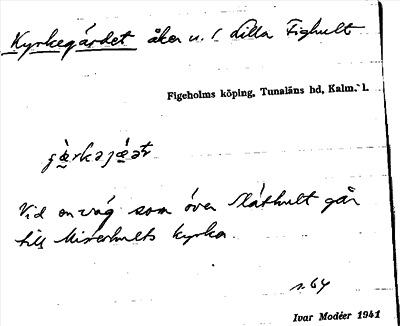 Kyrkegärdet åker u. f. Lilla Fighult
Figeholms köping, Tunaläns hd, Kalm. l.
Vid en väg som över Slåthult går
till Misterhults kyrka.
s. 64
Ivar Modéer 1941